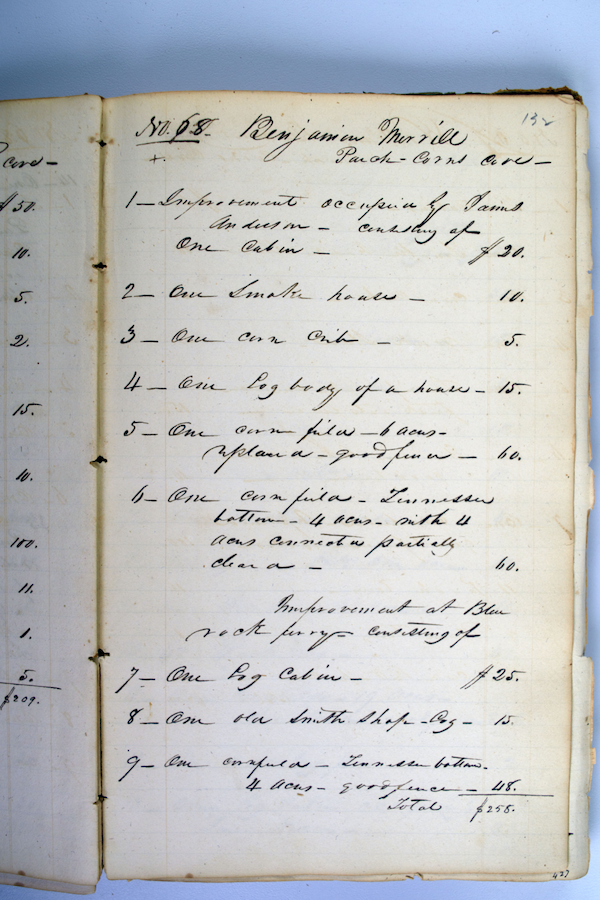 cove —
$50.
10.
5.
2.
15.
10.
100.
11.
1.
5.
$209.
132
No. 68. Benjamin Merrill
+. Parch-Corns cove —
1 — Improvement occupied by James
Anderson — consisting of
One Cabin — $20.
2 — One Smoke house — 10.
3 — One corn Crib — 5.
4 — One Log body of a house — 15.
5 — One corn field — 6 acres —
upland — good fence — 60.
6 — One corn field — Tennessee
bottom — 4 acres — with 4
acres connected partially
cleared — 60.
Improvement at Blue
rock ferry — consisting of
7 — One Log Cabin — $25.
8 — One old Smith Shop — Log — 15.
9 — One cornfield — Tennessee bottom —
4 acres — good fence — 48.
Total $258.
427